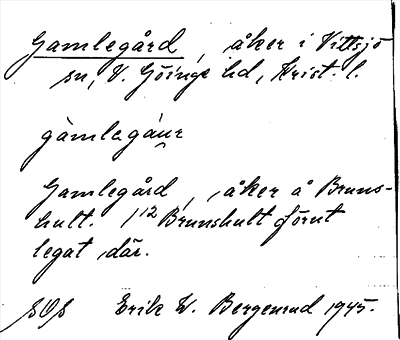 Gamlegård, åker i Vittsjö
sn, V. Göinge hd, Krist. l.
gàmlagáur
Gamlegård, åker å Bruns-
hult. 1/12 Brunshult förut
legat där.
SOS Erik W. Bergenrud 1945.